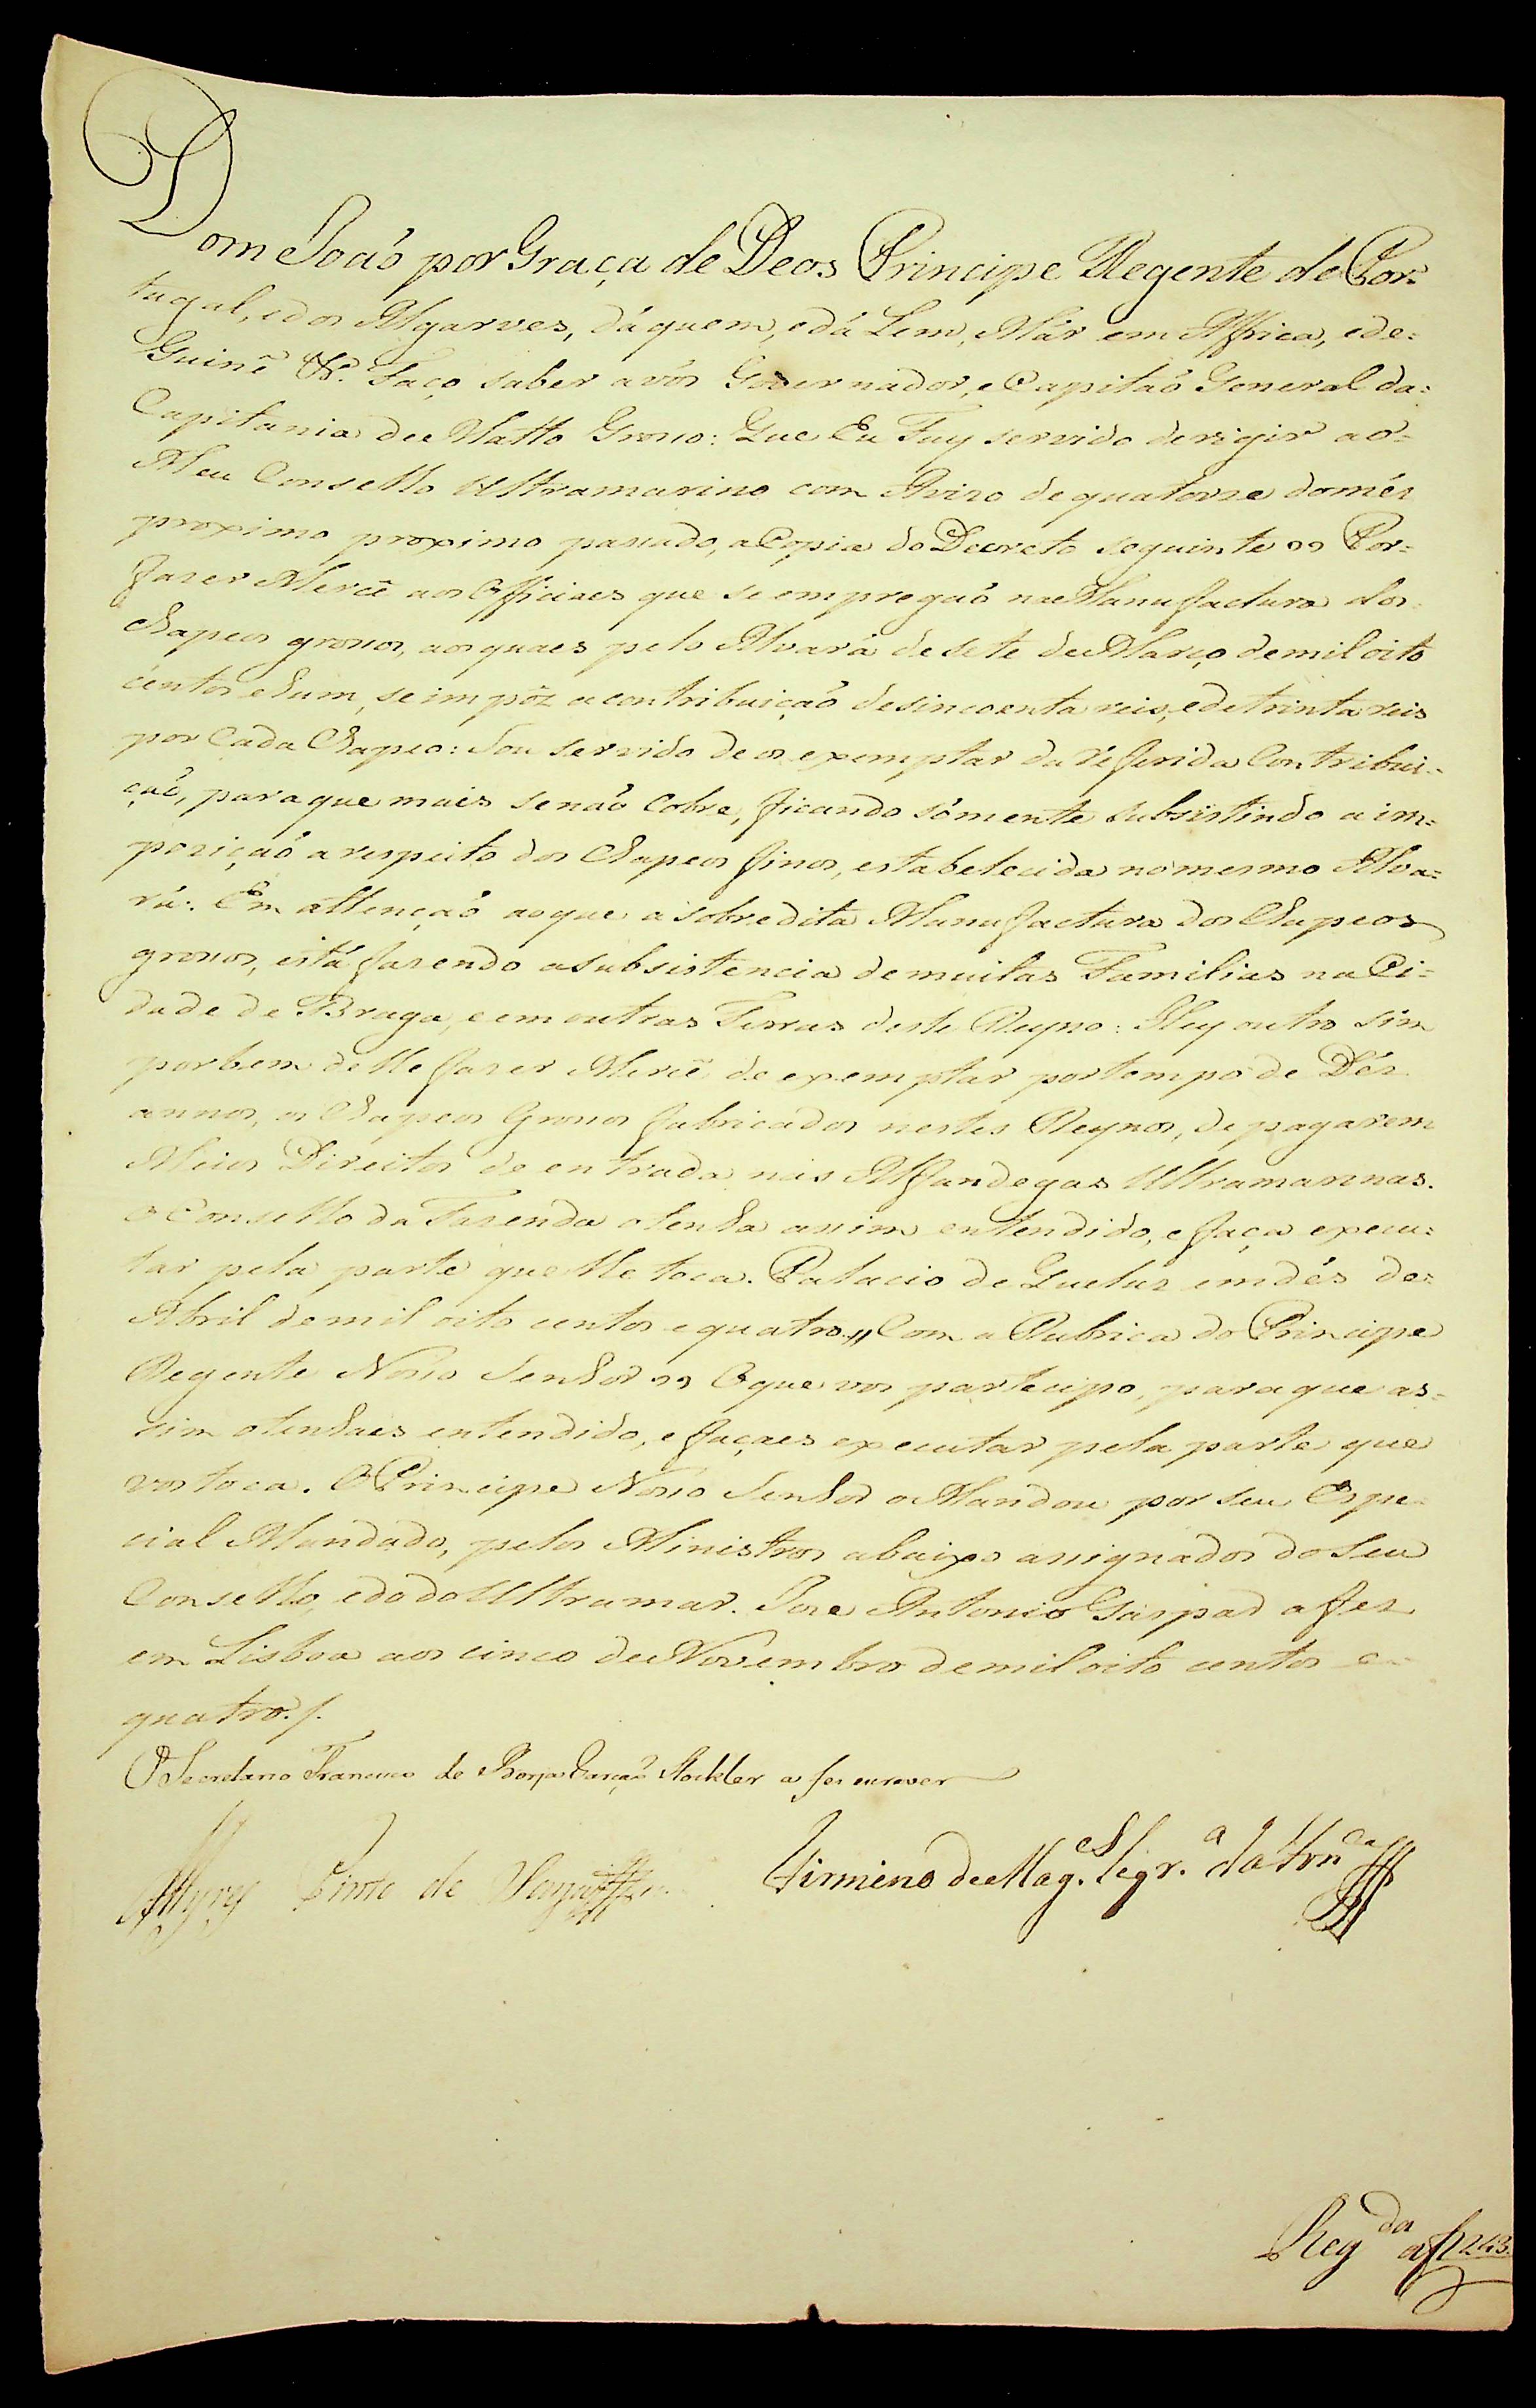 Dom João por Graça de Deos Principe Regente de Por=
tugal, e dos Algarves, dáquem, e dá Lem, Már em Affrica, e de=
Guiné &ª. Faço saber a vós Governador, e Capitaõ General da=
Capitania de Matto Grosso: Que Eu Fuy servido derigir ao=
Meu Conselho Ultramarino com Avizo de quatorze do més
proximo proximo passado, a Copia do Decreto seguinte ,, Por=
fazer Mercê aos Officiaes que se empregaõ na Manufactura dos=
chapeos grossos, aos quaes pelo Alvará de sete de Março de mil oito
centos e hum, se impôz a contribuiçaõ de sincoenta reis, e de trinta reis
por Cada Chapeo: Sou servido de os exemptar da referida Contribui=
çaõ, para que mais se naõ Cobre, ficando sómente subsistindo a im=
posiçaõ a respeito dos Chapeos finos, estabelecida no mesmo Alva=
rá: Em attençaõ ao que a sobredita Manufactura dos Chapeos
grossos, está fazendo a subsistencia de muitas Familias na Ci=
dade de Braga, e em outras Terras deste Reyno: Hey outro sim
por bem de lhe fazer Mercê de exemptar por tempo de Dés
annos, os Chapeos Grossos fabricados nestes Reynos, de pagarem
Meios Direitos de entrada nas Alfandegas Ultramarinas.
O Conselho da Fazenda o tenha assim entendido, e faça execu=
tar pela parte que lhe toca. Palacio de Queluz em dés de=
Abril de mil oito centos e quatro ,, Com a Rubrica do Principe
Regente Nosso Senhor ,, O que vos partecipo, para que as=
sim o tenhaes entendido, e façaes executar pela parte que
vos toca. O Principe Nosso Senhor o Mandou por seu Espe=
cial Mandado, pelos Ministros abaixo assignados do Seu
Conselho, e do do Ultramar. Joze Antonio Gaspar a fez
em Lisboa aos cinco de Novembro de mil oito centos e=
quatro./.
O Secretario Francisco de Borja Garçaõ Stockler a fez escrever
Firmino de Mag.es Seqr.ª da Fon.ca
Reg.da a f 243.